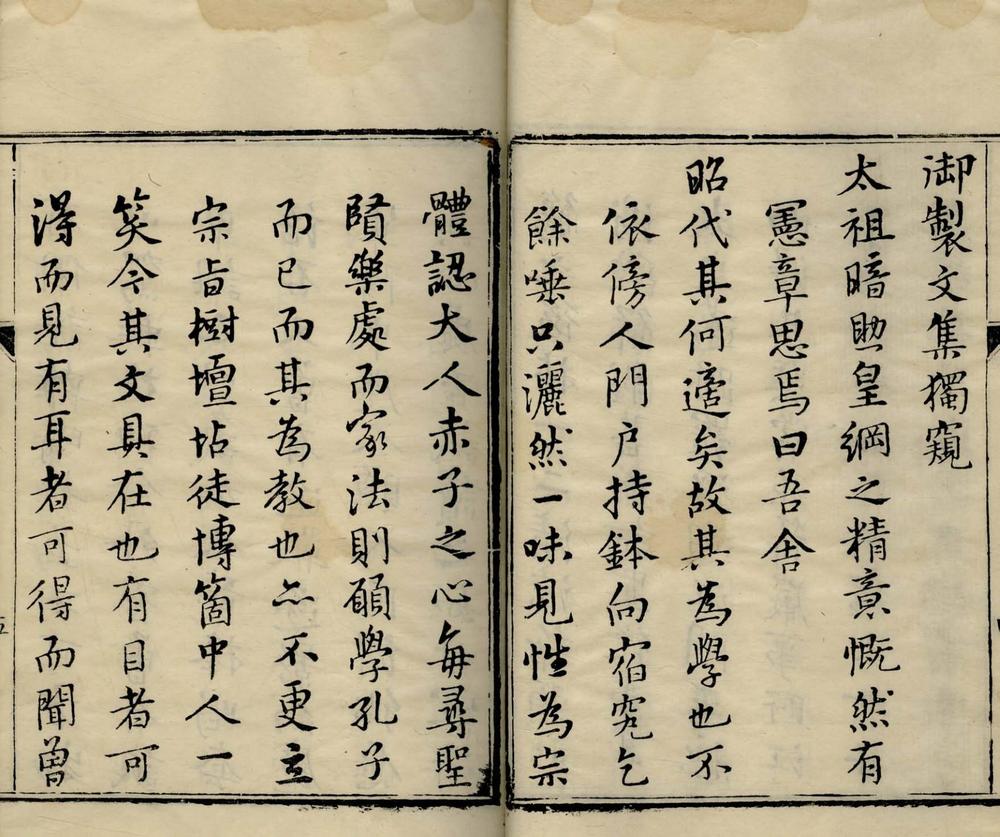 御製文集獨窺
太祖暗㷔皇綱之精意慨然有
憲章思焉曰吾舍
昭代其何適矣故其為學也不
依傍人門户持鉢向宿究乞
餘唾只灑然一味見性為宗
體認大人赤子之心每尋聖
賢樂處而家法則願學孔子
而已而其為教也亦不更立
宗旨樹壇坫徒博箇中人一
笑今其文具在也有目者可
得而見有耳者可得而聞曾